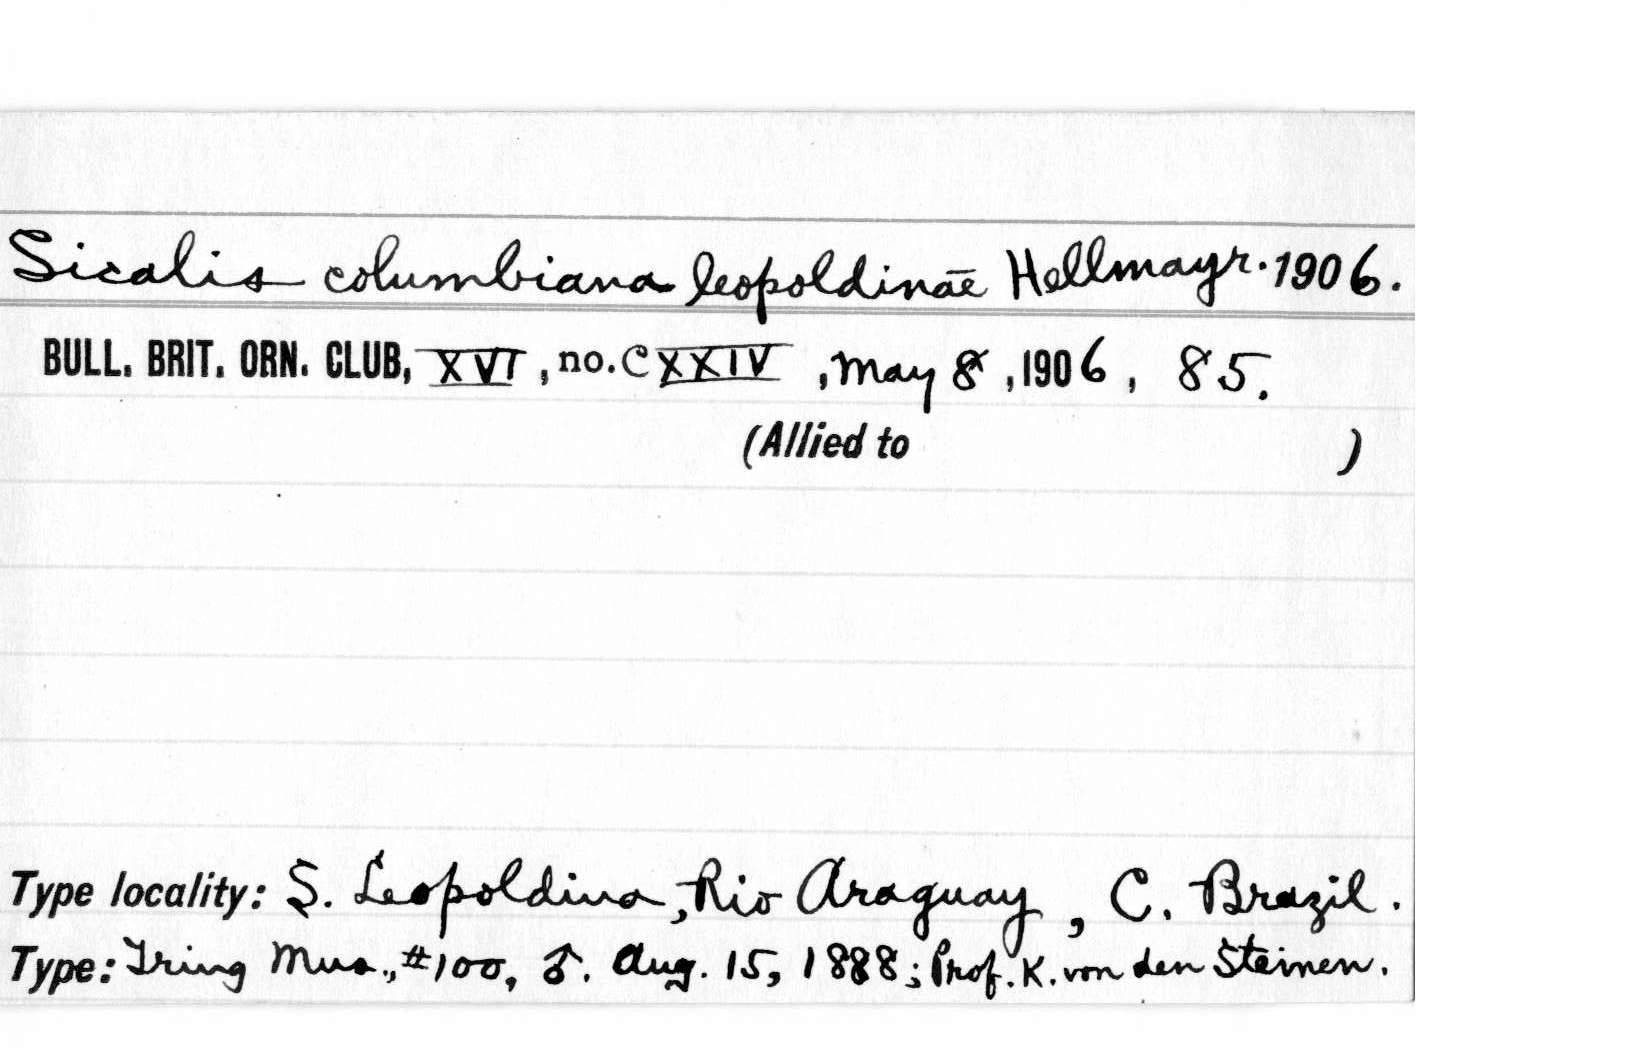 Sicalis columbiana leopoldinae Hellmayr. 1906.
BULL. BRIT. ORN. CLUB, XVI, no. CXXIV, May 8, 1906, 85.
(Allied to )
Type locality: S. Leopoldina, Rio Araguay, C. Brazil.
Type: Tring Mus., #100, ♂. Aug. 15, 1888; Prof. K. von den Steinen.